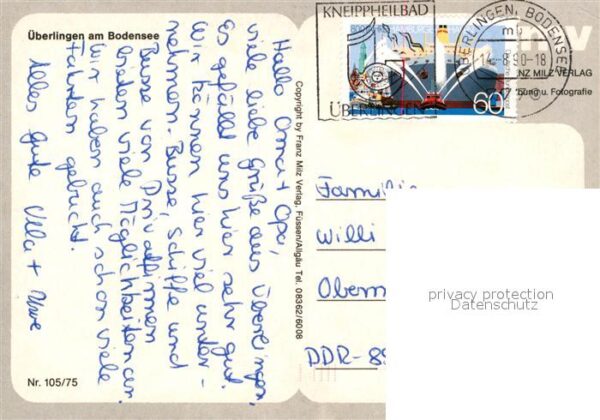 Überlingen am Bodensee
Hallo Oma + Opa,
viele liebe Grüße aus Überlingen,
Es gefällt uns hier sehr gut.
Wir können hier viel unter-
nehmen. Busse, Schiffe und
Busse von Privatfirmen
bieten viele Möglichkeiten an.
Wir haben auch schon viele
Fahrten gebucht.
Alles gute Ulla + Uwe
Nr. 105/75
Copyright by Franz Milz Verlag, Füssen/Allgäu Tel. 08362/6008
KNEIPPHEILBAD
ÜBERLINGEN
ÜBERLINGEN, BODENSEE
14.-8.90-18
60
mv
NZ MILZ VERLAG
bung u. Fotografie
Familie
Willi
Oberm
DDR-89
privacy protection
Datenschutz